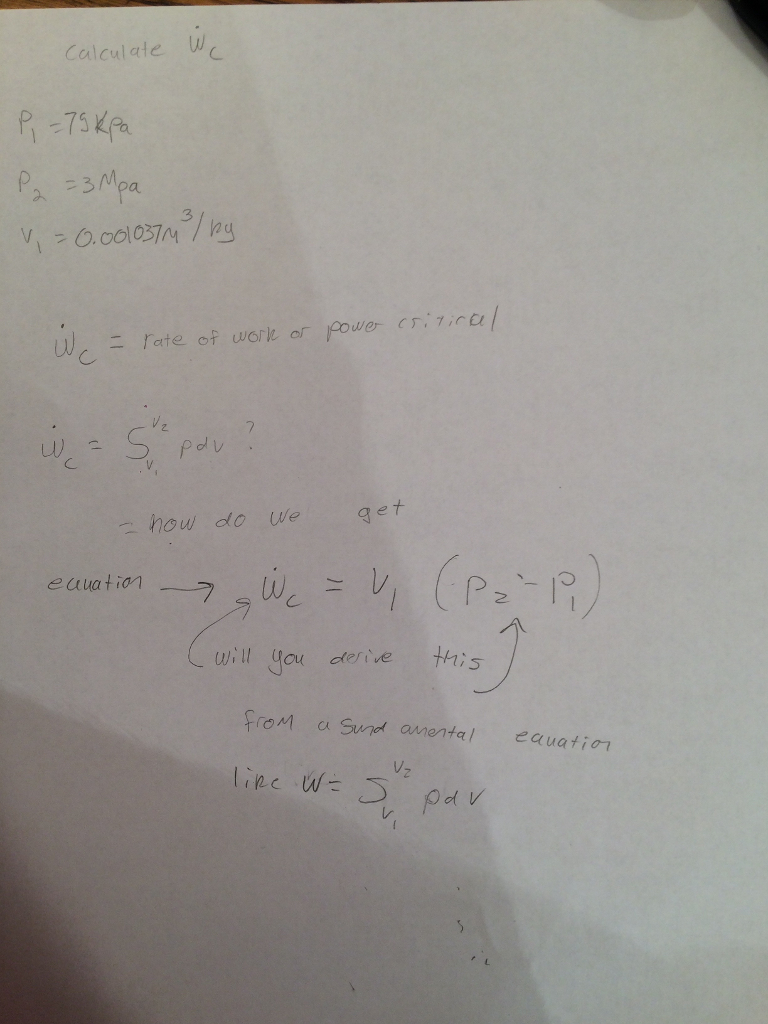 Calculate Ẇc
P₁ = 75Kpa
P₂ = 3Mpa
V₁ = 0.001037m³/kg
Ẇc = rate of work or power critical
Ẇc = ∫ᵥ₁ⱽ² pdv ?
= how do we get
equation → Ẇc = V₁ (P₂ - P₁)
will you derive this
from a fundamental equation
like W = ∫ᵥ₁ⱽ² pdv